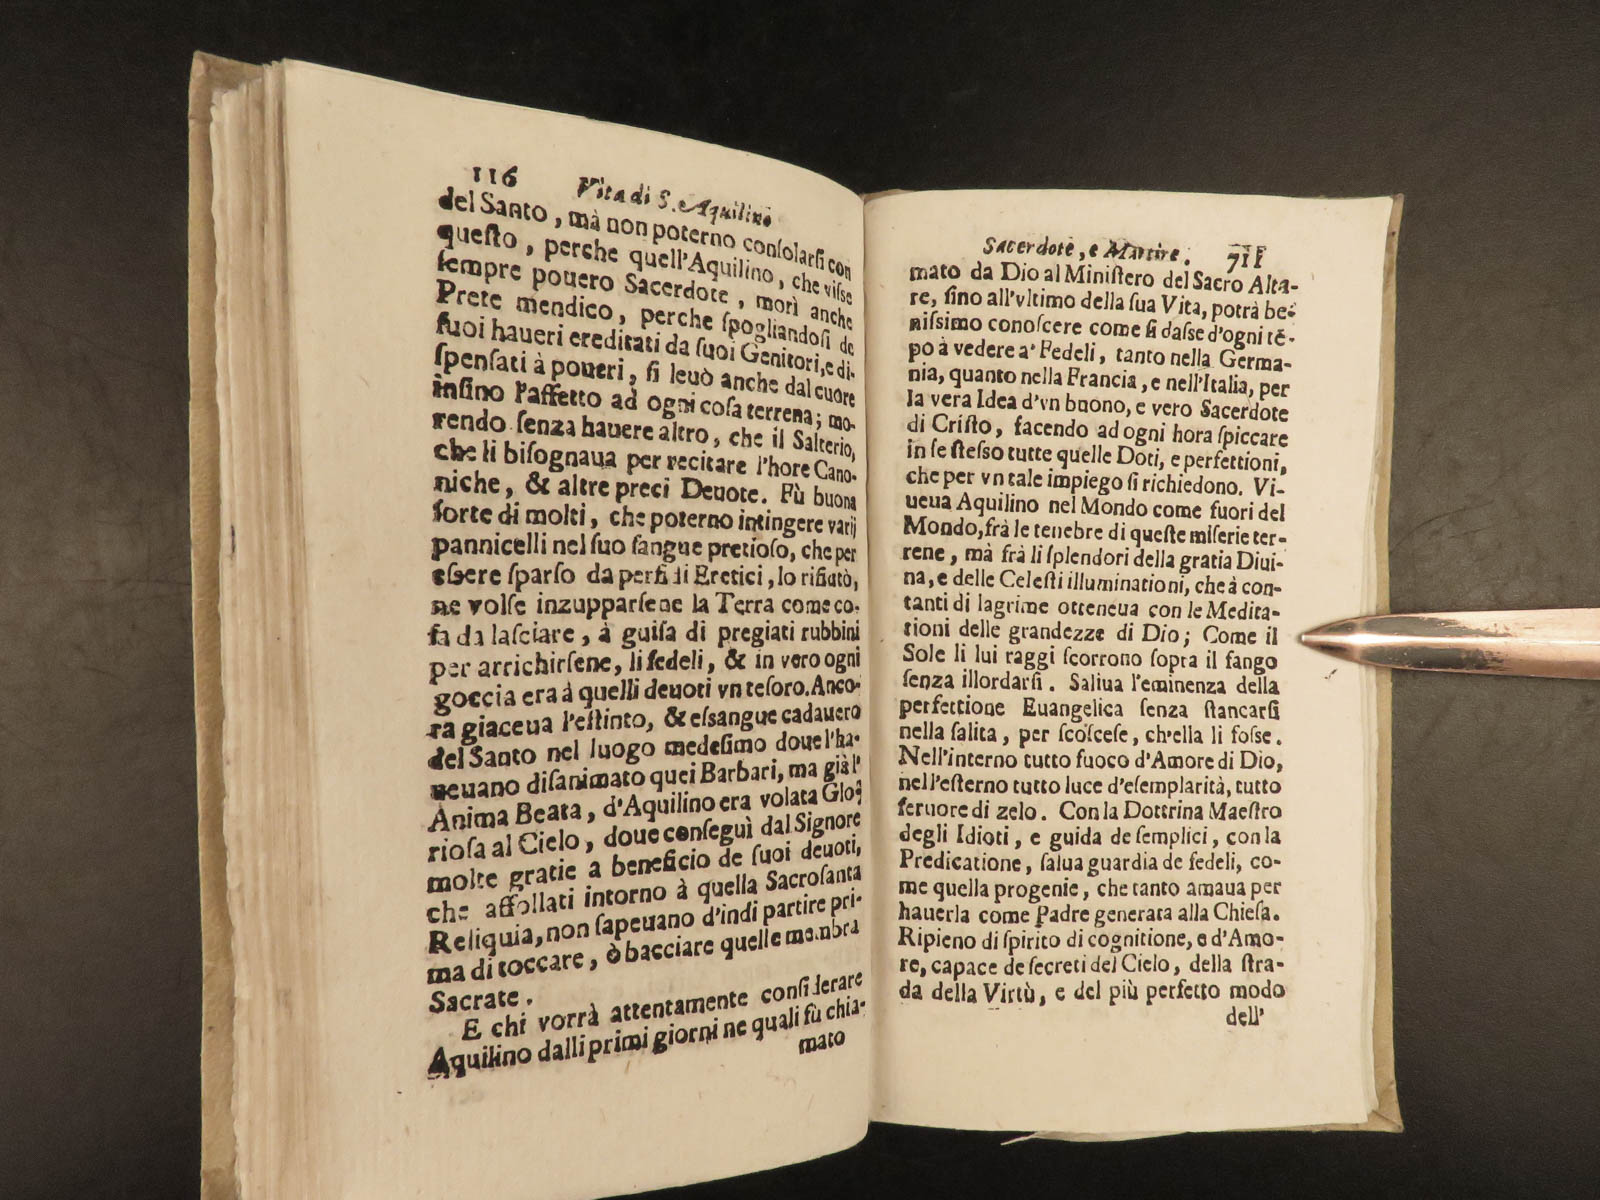 116 Vita di S. Aquilino
del Santo, mà non poterno conſolarſi con
queſto, perche quell'Aquilino, che viſſe
ſempre pouero Sacerdote, morì anche
Prete mendico, perche ſpogliandoſi de
ſuoi haueri ereditati da ſuoi Genitori, e di-
ſpenſati à poueri, ſi leuò anche dal cuore
inſino l'affetto ad ogni coſa terrena; mo-
rendo ſenza hauere altro, che il Salterio,
che li biſognaua per recitare l'hore Cano-
niche, & altre preci Deuote. Fù buona
ſorte di molti, che poterno intingere varij
pannicelli nel ſuo ſangue pretioſo, che per
eſsere ſparſo da perfidi Eretici, lo rifiutò,
ne volſe inzupparſene la Terra come co-
ſa da laſciare, à guiſa di pregiati rubbini
per arrichirſene, li fedeli, & in vero ogni
goccia era à quelli deuoti vn teſoro. Anco-
ra giaceua l'eſtinto, & eſsangue cadauero
del Santo nel luogo medeſimo doue l'ha-
ueuano diſanimato quei Barbari, ma già l'
Anima Beata, d'Aquilino era volata Glo-
rioſa al Cielo, doue conſeguì dal Signore
molte gratie a beneficio de ſuoi deuoti,
che affollati intorno à quella Sacroſanta
Reliquia, non ſapeuano d'indi partire pri-
ma di toccare, ò bacciare quelle membra
Sacrate.
E chi vorrà attentamente conſiderare
Aquilino dalli primi giorni ne quali fù chia-
mato
Sacerdote, e Martire. 711
mato da Dio al Miniſtero del Sacro Alta-
re, ſino all'vltimo della ſua Vita, potrà be-
niſsimo conoſcere come ſi daſse d'ogni tẽ-
po à vedere a' Fedeli, tanto nella Germa-
nia, quanto nella Francia, e nell'Italia, per
la vera Idea d'vn buono, e vero Sacerdote
di Criſto, facendo ad ogni hora ſpiccare
in ſe ſteſso tutte quelle Doti, e perfettioni,
che per vn tale impiego ſi richiedono. Vi-
ueua Aquilino nel Mondo come fuori del
Mondo, frà le tenebre di queſte miſerie ter-
rene, mà frà li ſplendori della gratia Diui-
na, e delle Celeſti illuminationi, che à con-
tanti di lagrime otteneua con le Medita-
tioni delle grandezze di Dio; Come il
Sole li lui raggi ſcorrono ſopra il fango
ſenza illordarſi. Saliua l'eminenza della
perfettione Euangelica ſenza ſtancarſi
nella ſalita, per ſcoſceſe, ch'ella li foſse.
Nell'interno tutto fuoco d'Amore di Dio,
nell'eſterno tutto luce d'eſemplarità, tutto
feruore di zelo. Con la Dottrina Maeſtro
degli Idioti, e guida de ſemplici, con la
Predicatione, ſalua guardia de fedeli, co-
me quella progenie, che tanto amaua per
hauerla come Padre generata alla Chieſa.
Ripieno di ſpirito di cognitione, e d'Amo-
re, capace de ſecreti del Cielo, della ſtra-
da della Virtù, e del più perfetto modo
dell'